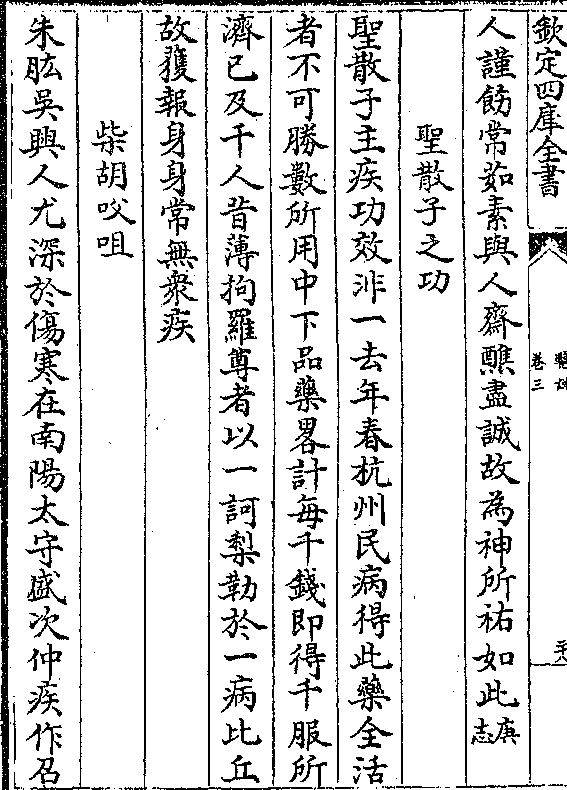 欽定四庫全書
醫說
卷三
二十六
人謹飭常茹素與人齋醮盡誠故為神所祐如此庚志
聖散子之功
聖散子主疾功效非一去年春杭州民病得此藥全活
者不可勝數所用中下品藥畧計每千錢即得千服所
濟已及千人昔薄拘羅尊者以一訶梨勒於一病比丘
故獲報身身常無衆疾
柴胡㕮咀
朱肱吳興人尤深於傷寒在南陽太守盛次仲疾作召